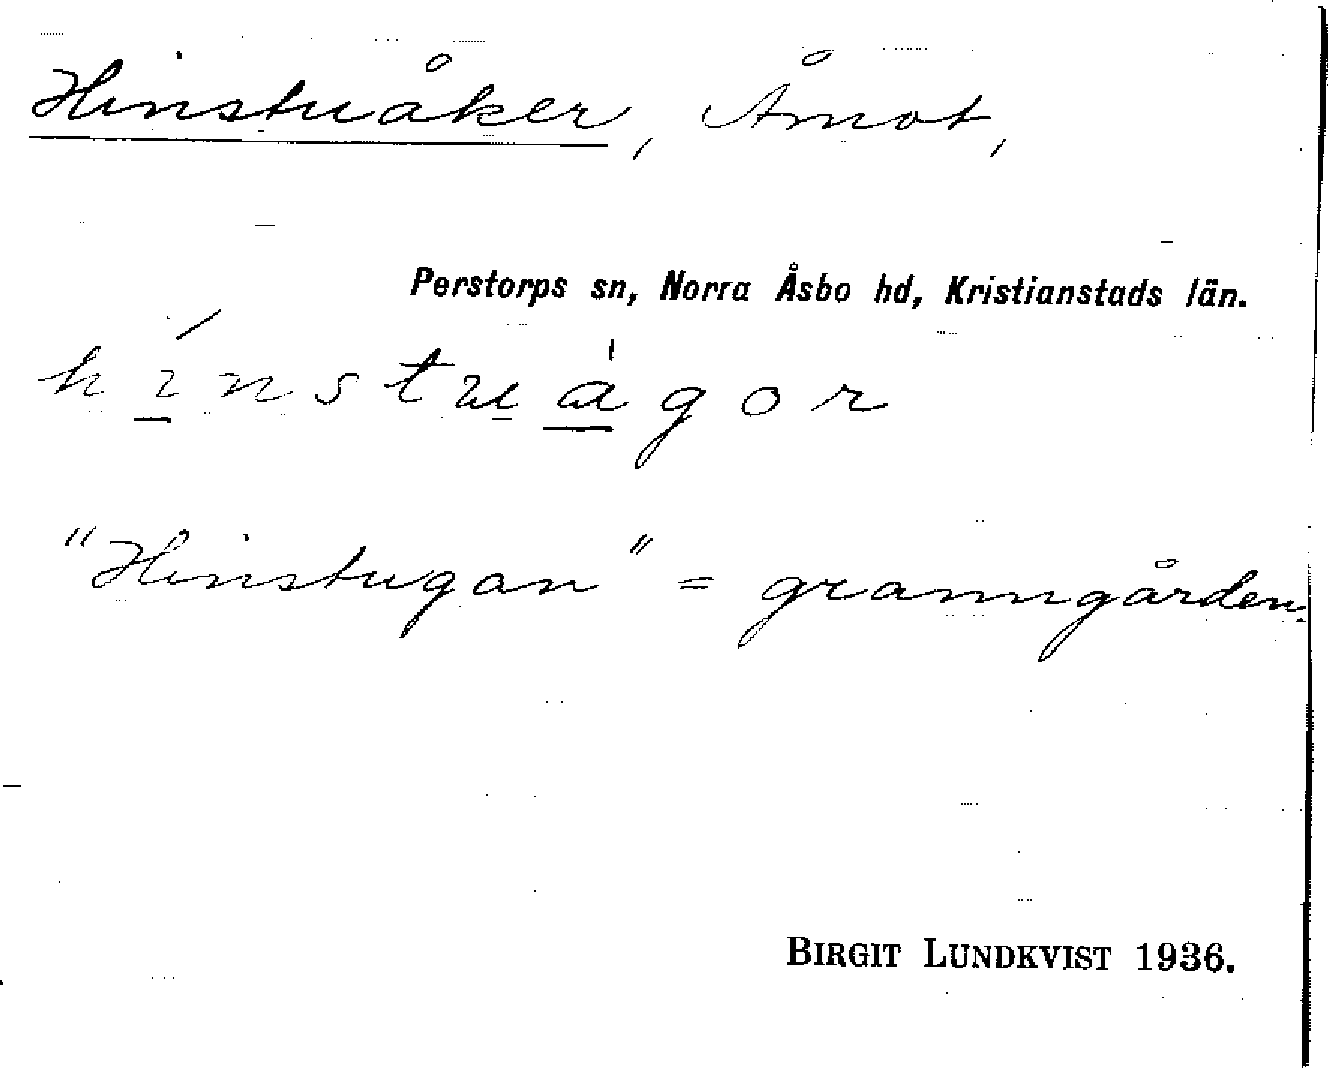 Hinstuåker, Åmot,
Perstorps sn, Norra Åsbo hd, Kristianstads län.
hínstuágor
"Hinstugan" = granngården.
BIRGIT LUNDKVIST 1936.